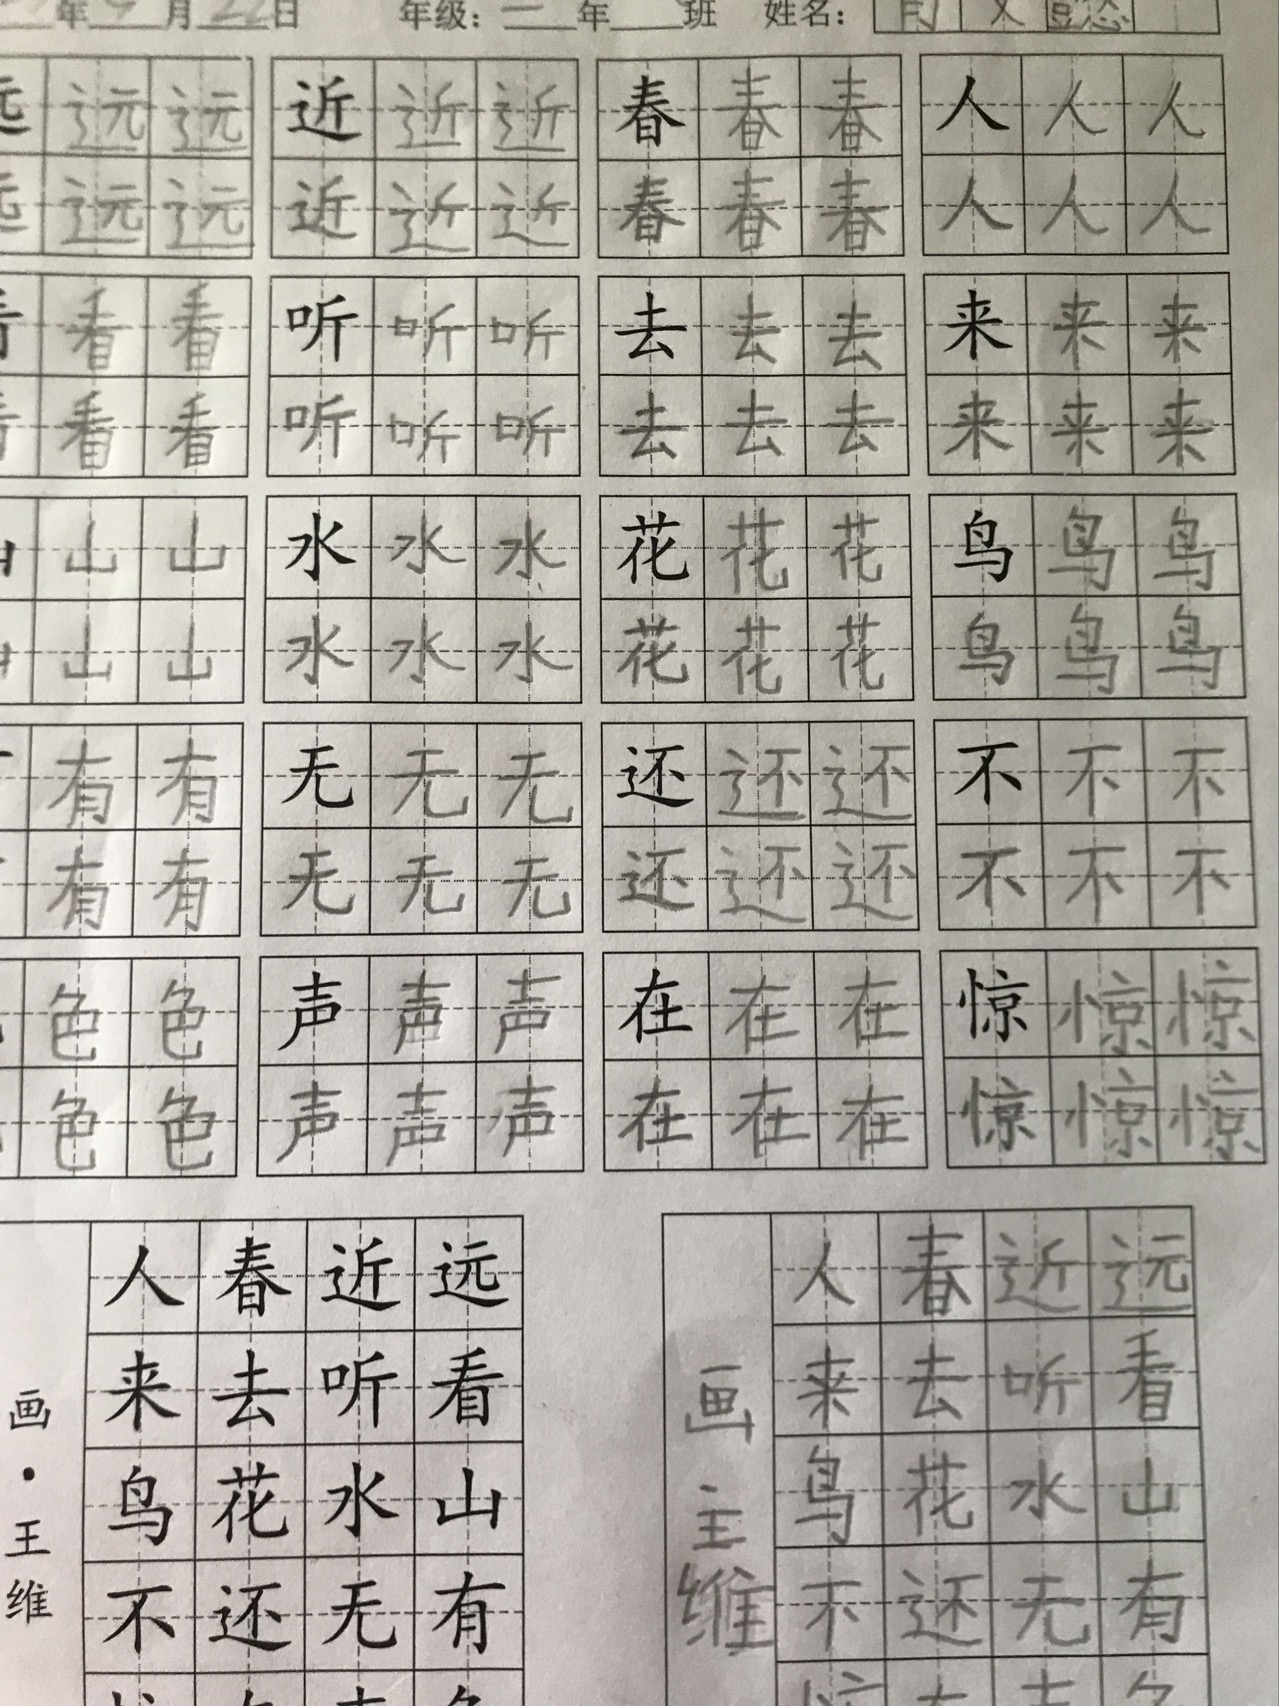 年9月22日 年级：二年 班 姓名：
远远 近近近 春春春 人人人
远远 近近近 春春春 人人人
看看 听听听 去去去 来来来
看看 听听听 去去去 来来来
山山 水水水 花花花 鸟鸟鸟
山山 水水水 花花花 鸟鸟鸟
有有 无无无 还还还 不不不
有有 无无无 还还还 不不不
色色 声声声 在在在 惊惊惊
色色 声声声 在在在 惊惊惊
远看山有
近听水无
春去花还
人来鸟不
画·王维
远看山有
近听水无
春去花还
人来鸟不
画 主维